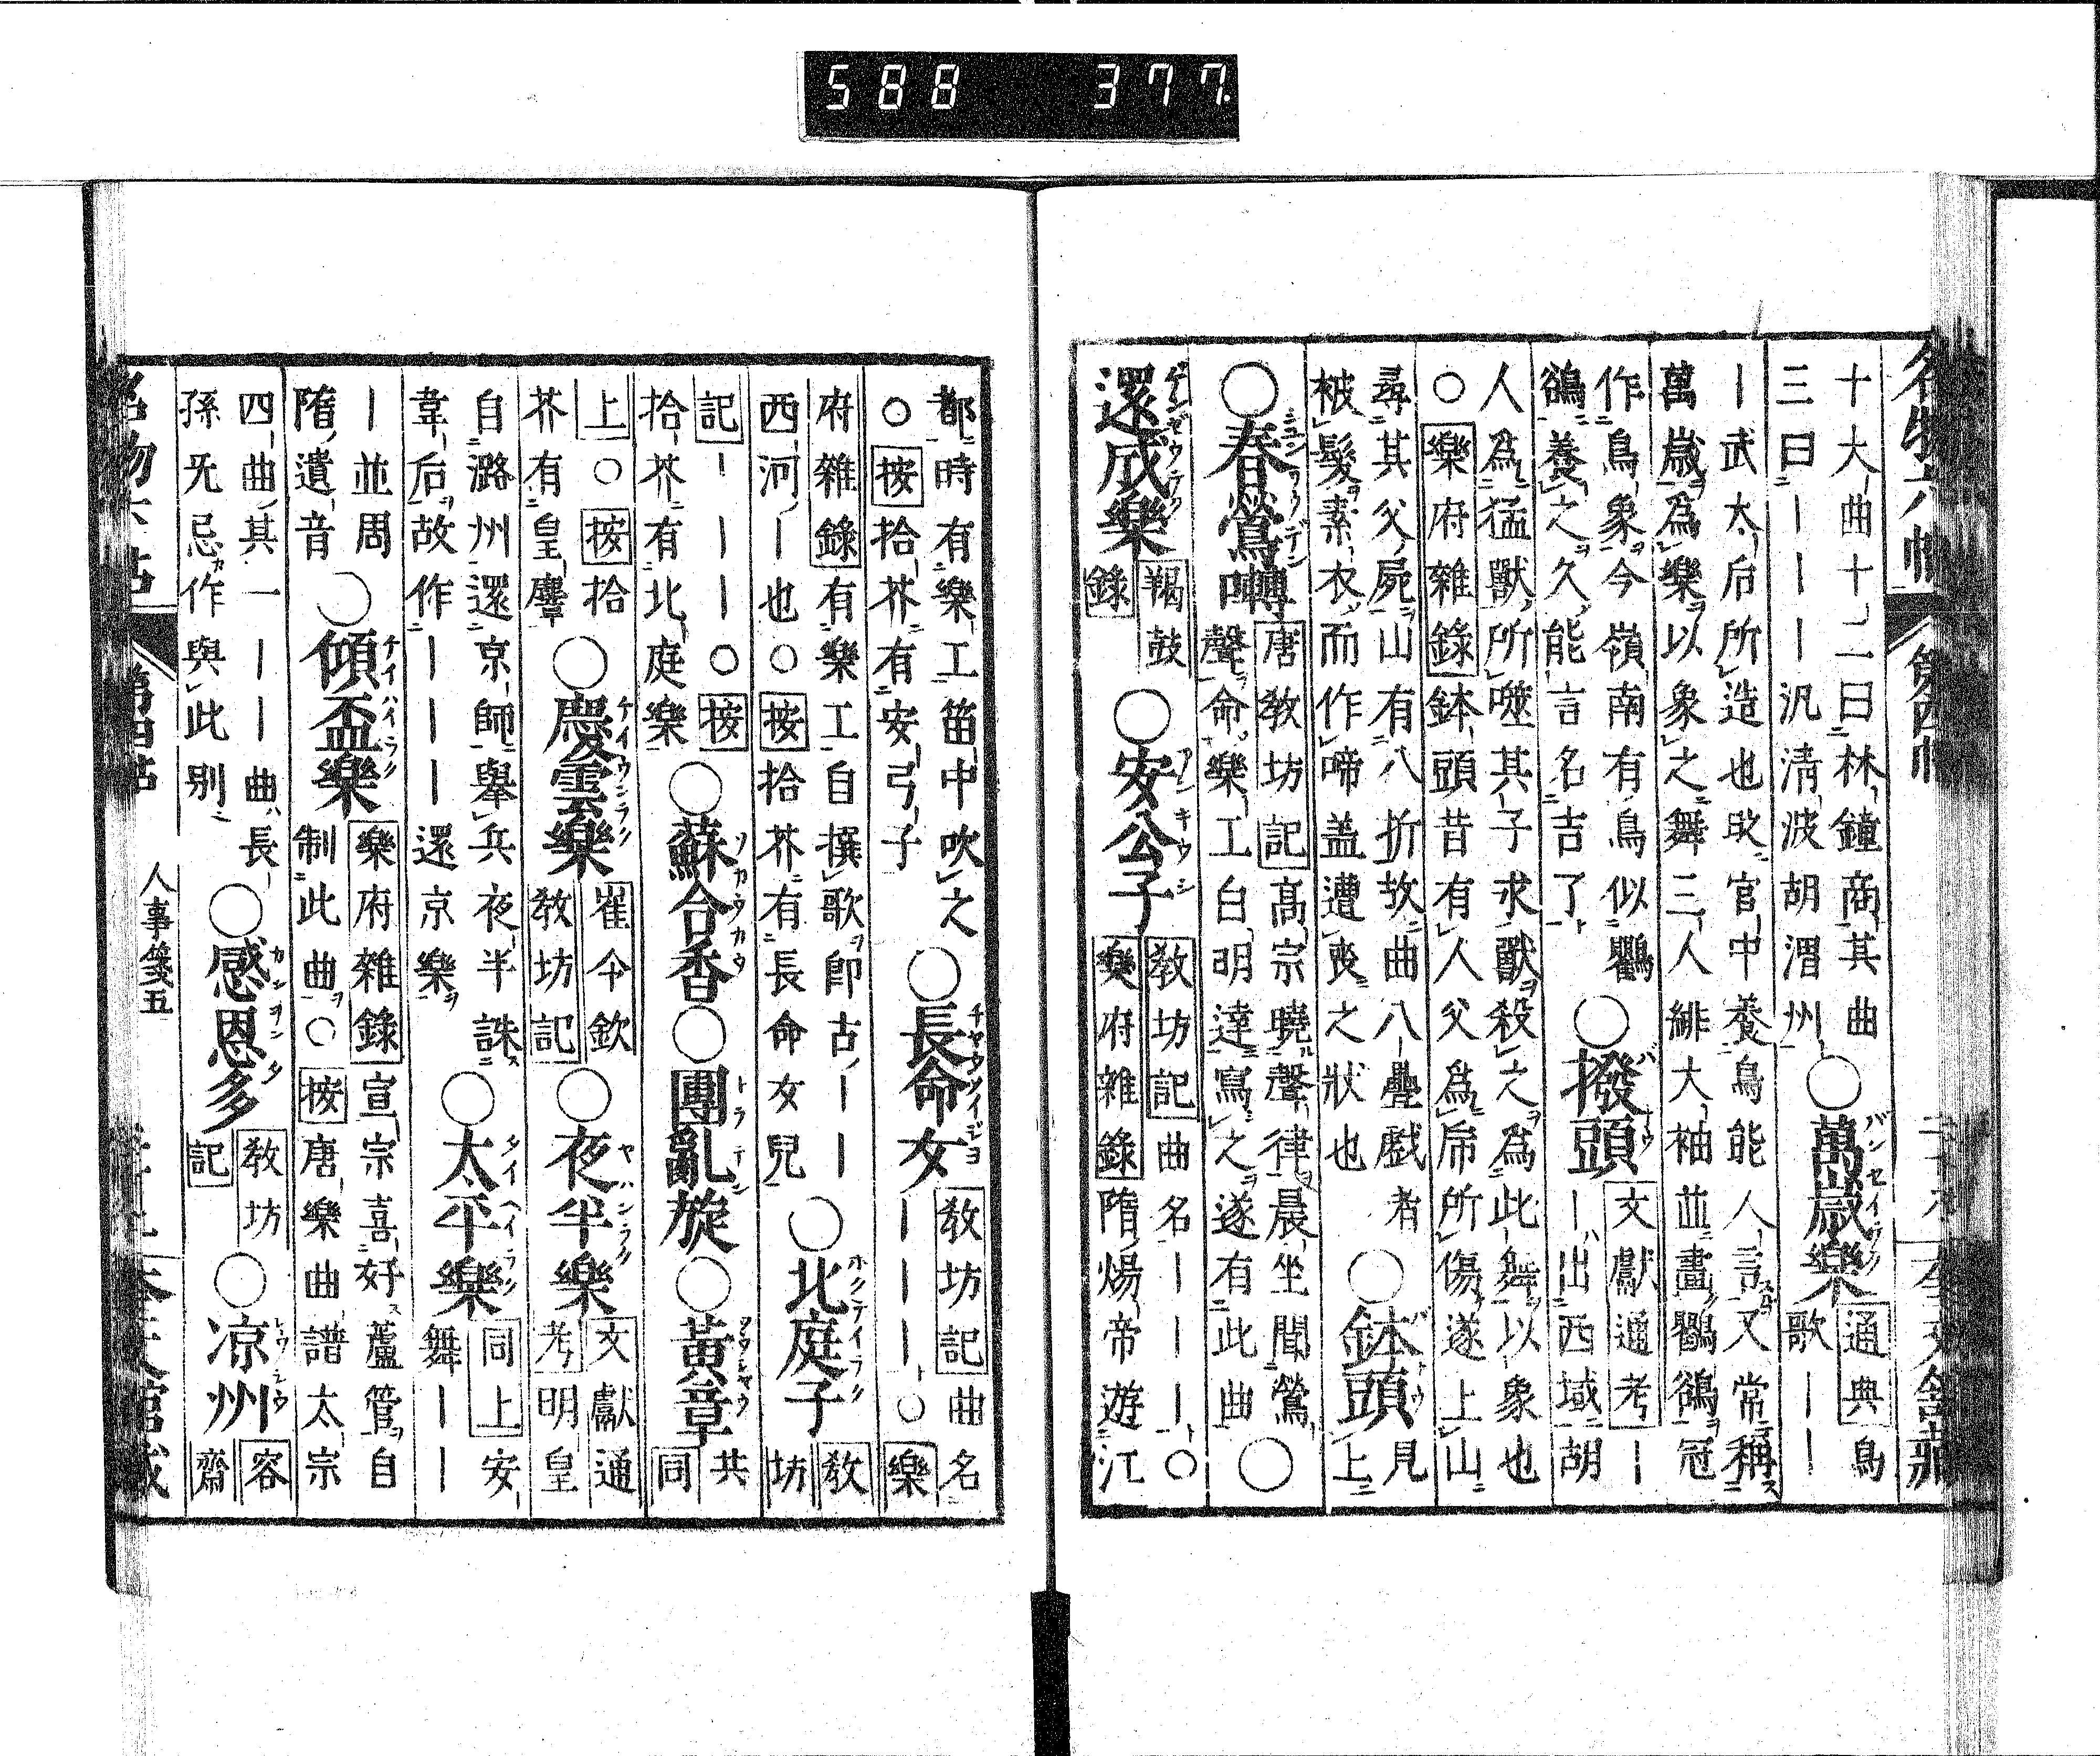 名物六帖 第四帖
十大曲十一二曰林鐘商其曲
三曰｜｜｜汎清波胡渭州
○萬歳樂
通典鳥
歌｜｜
｜武太后所造也時官中養鳥能人言又常稱
萬歳為樂以象之舞三人緋大袖並畫鸜鵒冠
作鳥象今嶺南有鳥似鸜
鵒養之久能言名吉了
○撥頭
文獻通考｜
｜出西域胡
人為猛獸所噬其子求獸殺之為此舞以象也
○樂府雜錄鉢頭昔有人父為乕所傷遂上山
尋其父屍山有八折故曲八疊戯者
被髮素衣而作啼盖遭喪之狀也
○鉢頭
見
上
○春鶯囀
唐教坊記高宗曉聲律晨坐聞鶯
聲命樂工白明達寫之遂有此曲
○還成樂
羯鼓
錄
○安公子
教坊記曲名｜｜｜○
樂府雜錄隋煬帝遊江
都時有樂工笛中吹之
○按拾芥有安弓子
○長命女
教坊記曲名
｜｜｜○樂
府雜錄有樂工自撰歌即古｜｜
西河｜也○按拾芥有長命女兒
○北庭子
教
坊
記｜｜｜○按
拾芥有北庭樂
○蘇合香○團亂旋○黃章
共
同
上○按拾
芥有皇麞
○慶雲樂
崔令欽
教坊記
○夜半樂
文獻通
考明皇
自潞州還京師舉兵夜半誅
韋后故作｜｜｜還京樂
○太平樂
同上安
舞｜｜
｜並周
隋遺音
○傾盃樂
樂府雜錄宣宗喜好蘆管自
制此曲○按唐樂曲譜太宗
四曲其一｜｜曲長
孫无忌作與此別
○感恩多
教坊
記
○凉州
容
齋
名物六帖 第四帖 人事箋五